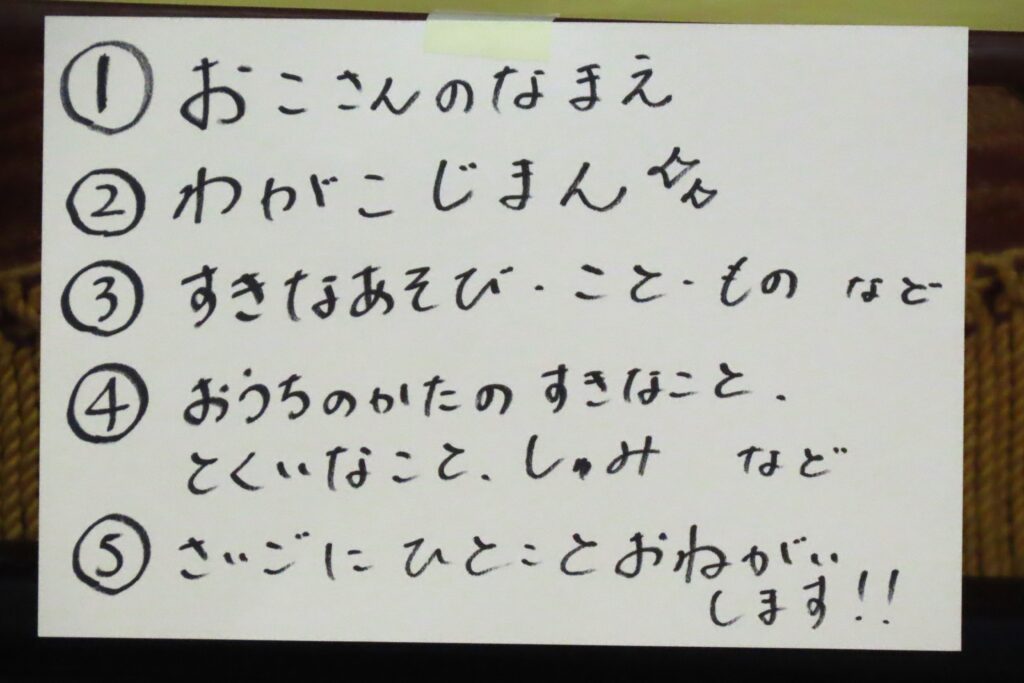 ① おこさんのなまえ
② わがこ じまん
③ すきなあそび・こと・もの など
④ おうちのかたの すきなこと、
とくいなこと、しゅみ など
⑤ さいごに ひとことおねがい
します!!